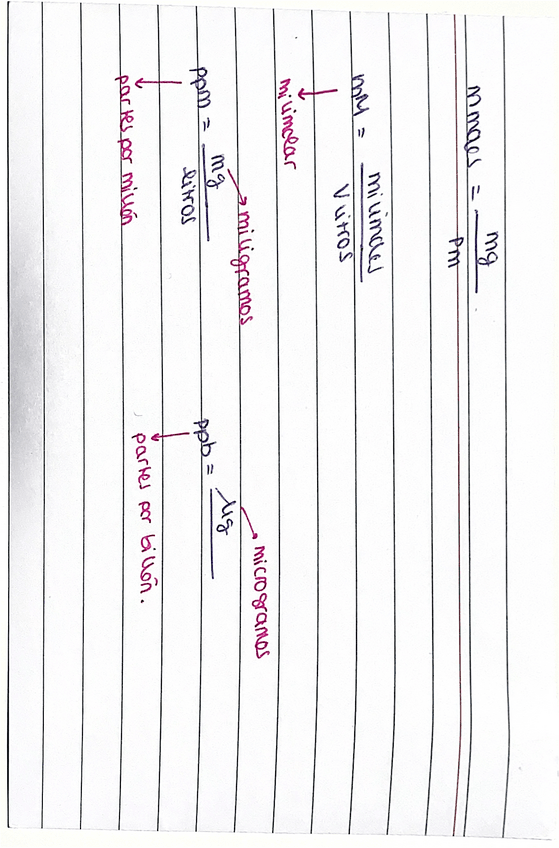 mmoles = mg
Pm
mM = milimoles
V litros
milimolar
ppm = mg
litros
miligramos
partes por millón
ppb = μg
microgramos
partes por billón.